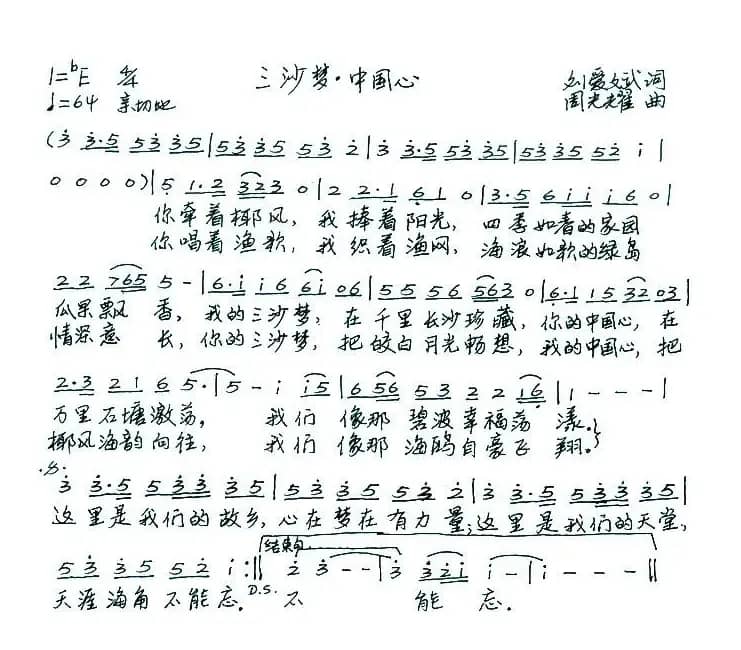 1=ᵇE 4/4 三沙梦·中国心 刘爱斌词
♩=64 亲切地 周光耀 曲
(3̇ 3̇·5 53̇ 3̇5|53̇ 3̇5 53̇ 2̇|3̇ 3̇·5 53̇ 3̇5|53̇ 3̇5 52̇ i|
0 0 0 0)|5̣ 1·2 323 0|2 2·1 6̣1 0|3·5 6i i i6 0|
你牵着椰风，我捧着阳光，四季如春的家园
你唱着渔歌，我织着渔网，海浪如歌的绿岛
22 765 5 -|6·i i6 6i 06|55 56 563 0|6̣·1 15 32 03|
瓜果飘香，我的三沙梦，在千里长沙珍藏，你的中国心，在
情深意长，你的三沙梦，把皎白月光畅想，我的中国心，把
2·3 21 6 5·|5 - i i5|6 56 53 2 2 16̣|1 - - -|
万里石塘激荡，我们像那碧波幸福荡漾。
椰风海韵向往，我们像那海鸥自豪飞翔。
.S. 3̇ 3̇·5 53̇3̇ 3̇5|53̇ 3̇5 53̇ 2̇|3̇ 3̇·5 53̇3̇ 3̇5|
这里是我们的故乡，心在梦在有力量；这里是我们的天堂，
结束句
53̇ 3̇5 52̇ i:‖ 2̇ 3̇ - -|3̇ 3̇2̇i i -|i - - -‖
天涯海角不能忘。D.S. 不能忘。